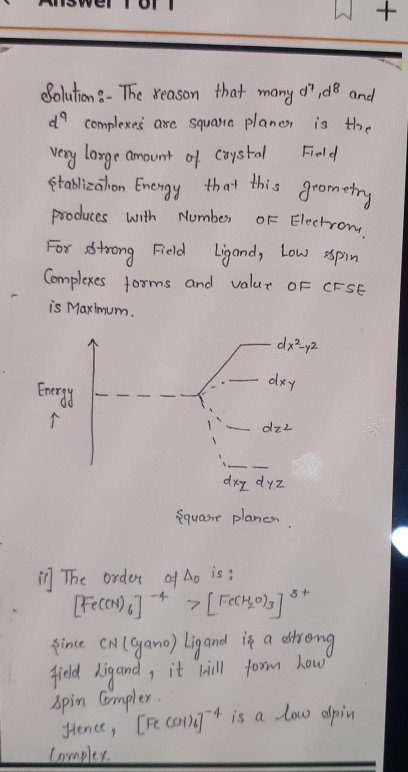 Answer 1 of 1
Solution :- The reason that many d⁷, d⁸ and
d⁹ complexes are square planer is the
very large amount of crystal Field
Stablization Energy that this geometry
produces with Number OF Electron.
For strong Field Ligand, Low spin
Complexes forms and value OF CFSE
is Maximum.
dx²-y²
dxy
Energy
↑
dz²
dxz dyz
Square planer.
ii] The order of Δo is :
[Fe(CN)6]⁻⁴ > [Fe(H2O)3]³⁺
Since CN (Cyano) Ligand is a strong
field Ligand, it will form Low
spin Complex.
Hence, [Fe(CN)6]⁻⁴ is a low spin
Complex.